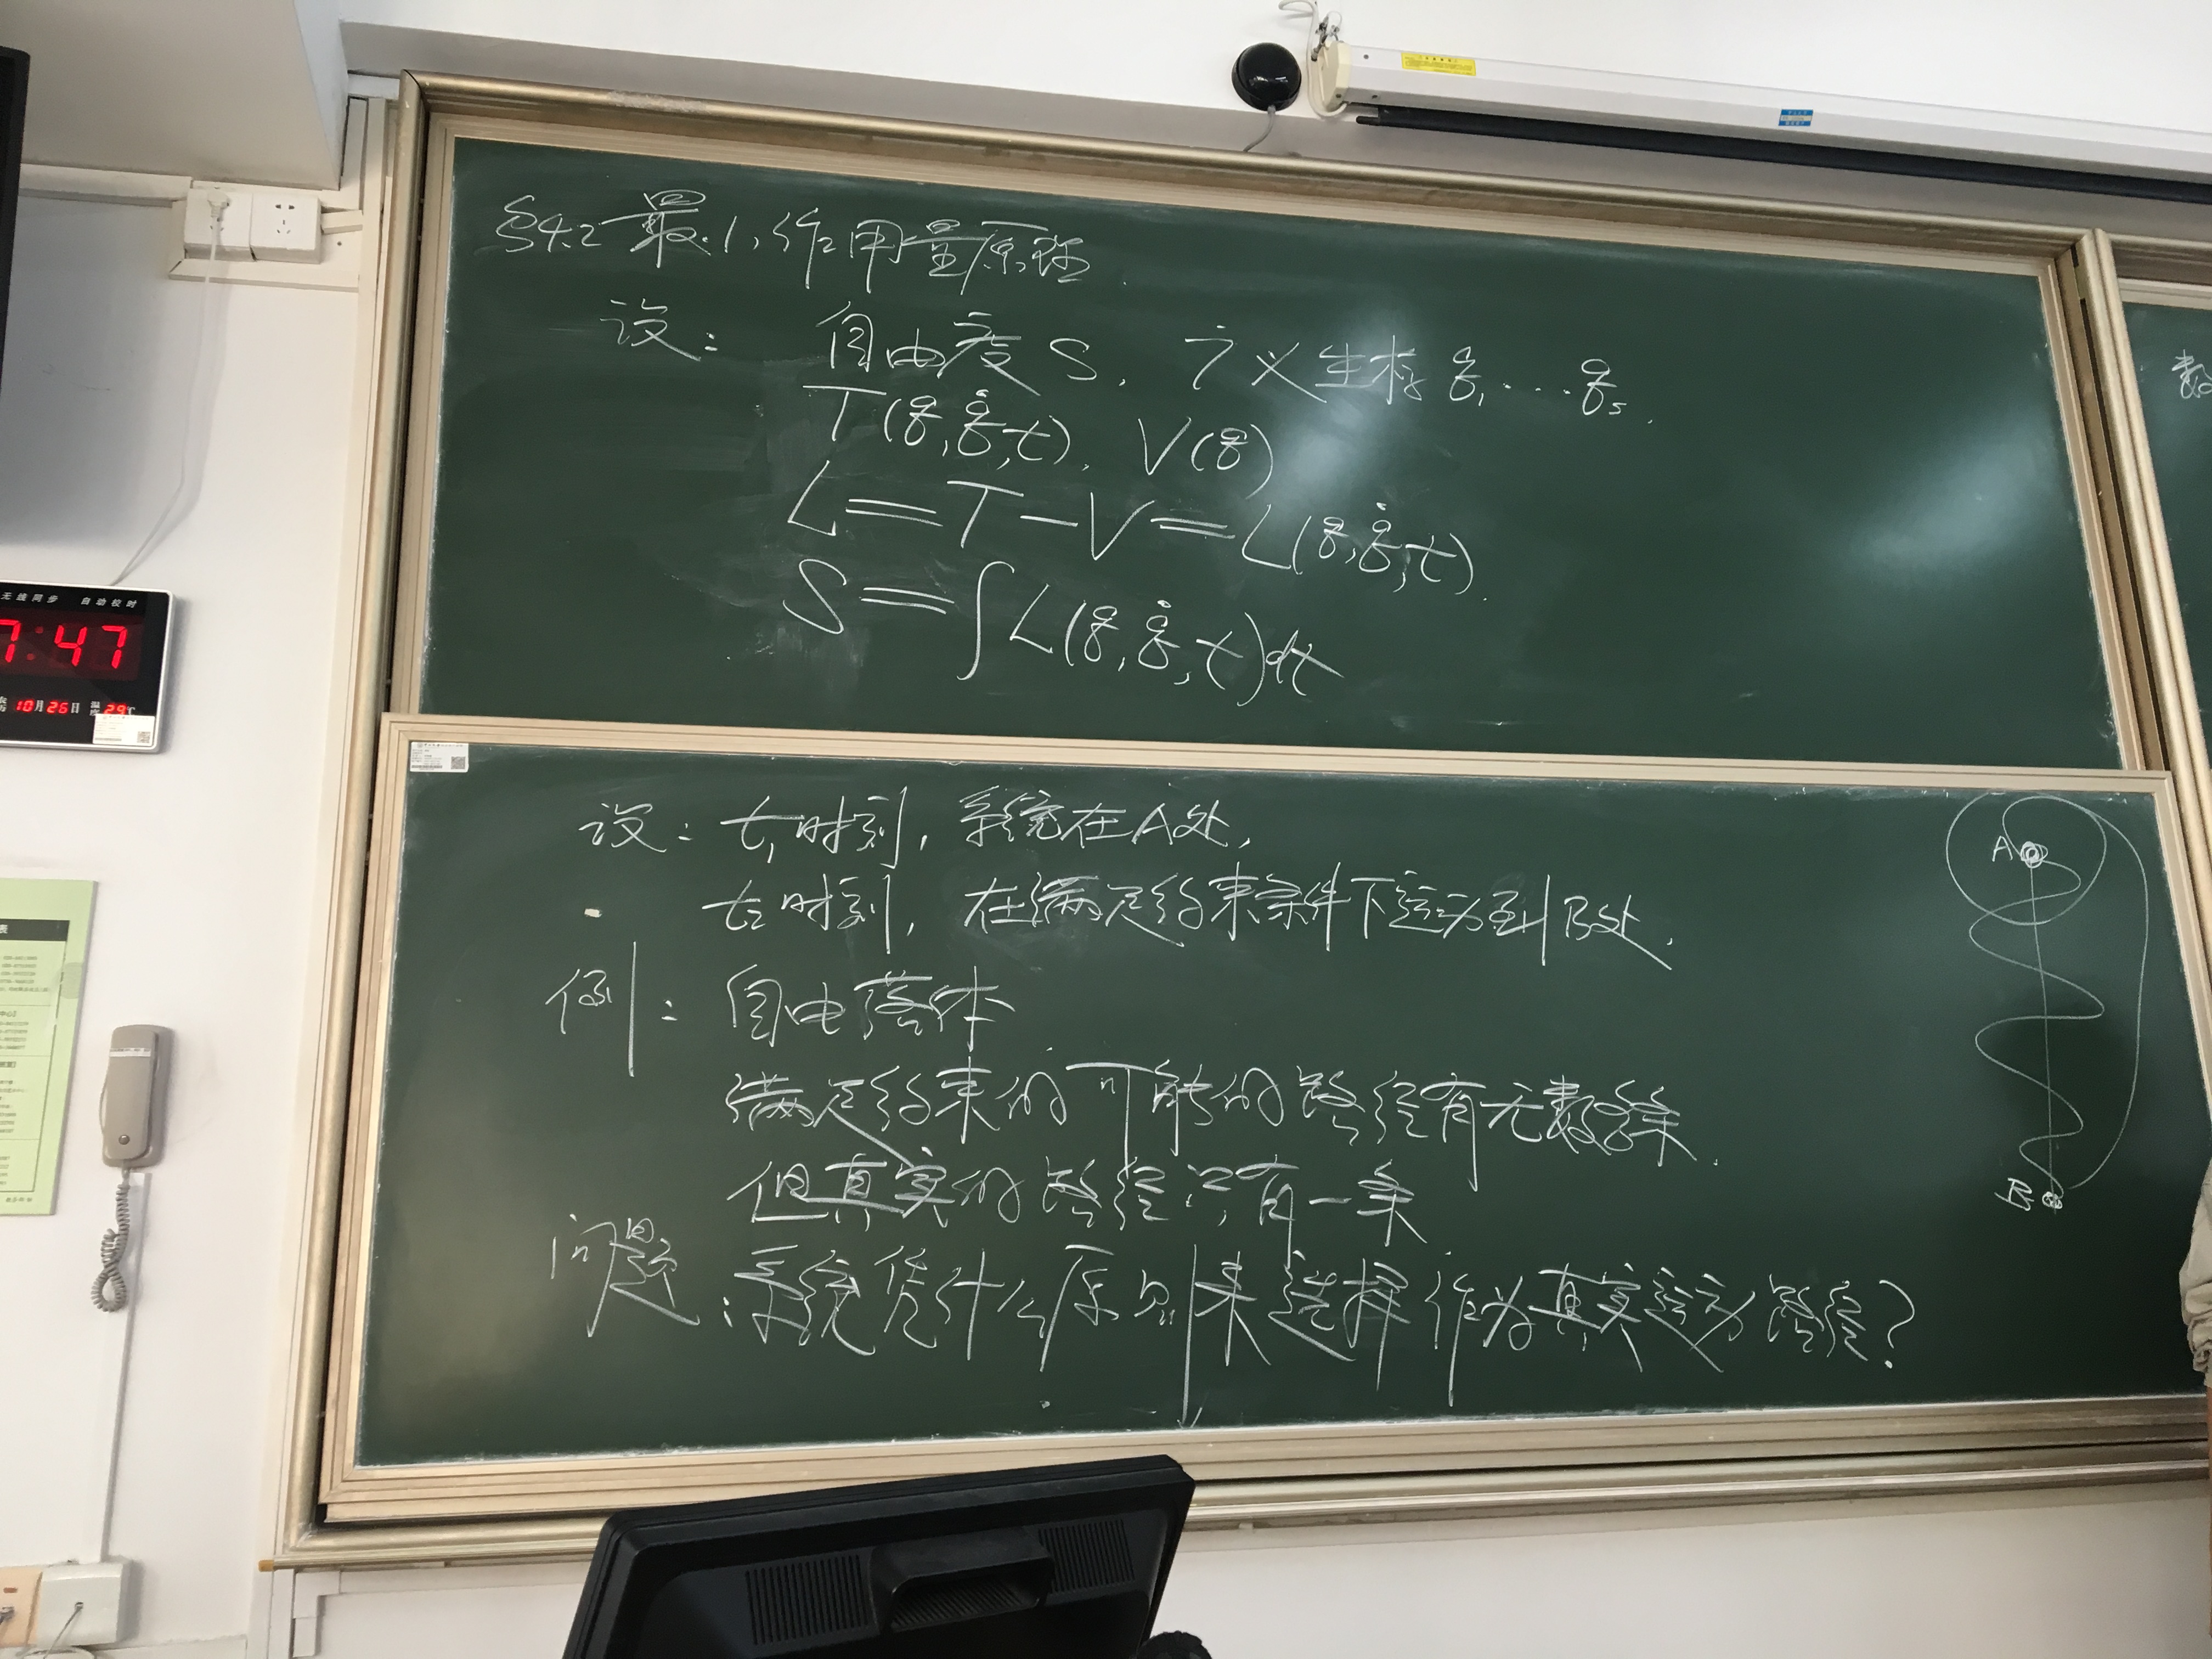 §4.2 最小作用量原理.
设: 自由度 S, 广义坐标 q₁...qₛ.
T(q,q̇,t), V(q)
L=T-V=L(q,q̇,t).
S=∫L(q,q̇,t)dt
设: t₁时刻, 系统在A处,
t₂时刻, 在满足约束条件下运动到B处.
例: 自由落体
满足约束的可能的路径有无数条.
但真实的路径只有一条
问题: 系统凭什么原则来选择作为真实运动路径?
A
B
数
无线同步 自动校时
7:47
农历 10月26日 温度 29℃